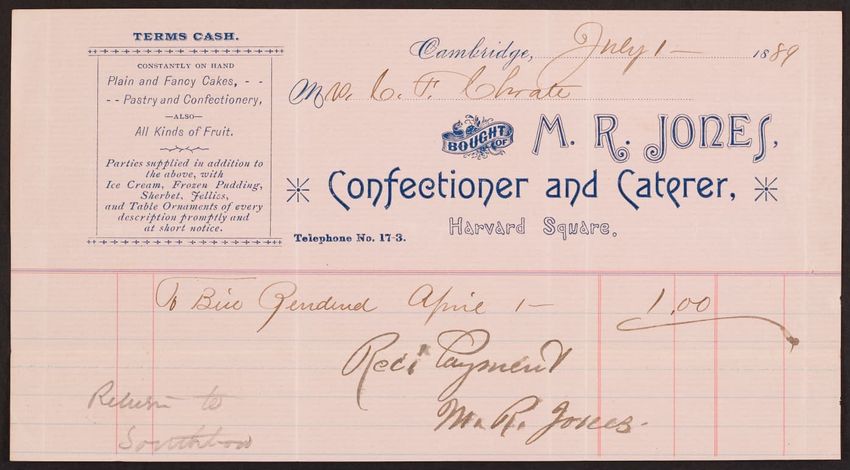 TERMS CASH.
CONSTANTLY ON HAND
Plain and Fancy Cakes, - -
- - Pastry and Confectionery,
—ALSO—
All Kinds of Fruit.
Parties supplied in addition to
the above, with
Ice Cream, Frozen Pudding,
Sherbet, Jellies,
and Table Ornaments of every
description promptly and
at short notice.
Cambridge, July 1 — 1889
Mr. C. F. Choate
BOUGHT OF
M. R. JONES,
Confectioner and Caterer,
Harvard Square.
Telephone No. 17-3.
To Bill Rendered April 1 — 1.00
Rec'd Payment
M. R. Jones.
Return to